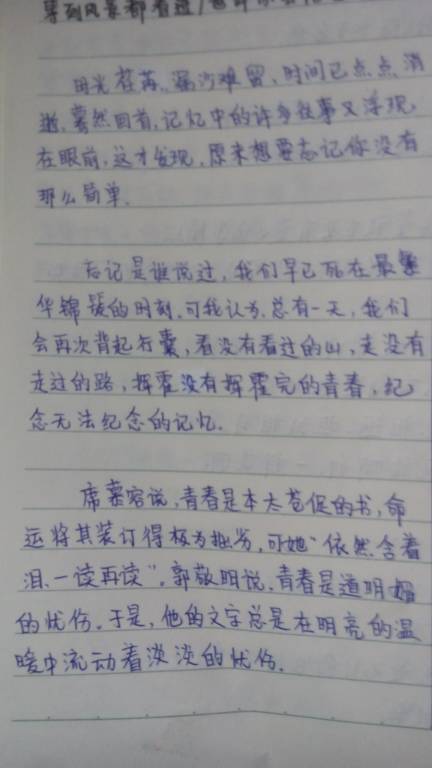 等到风景都看透/也许你会
时光荏苒,漏沙难留,时间已点点消
逝,蓦然回首,记忆中的许多往事又浮现
在眼前,这才发现,原来想要忘记你没有
那么简单.
忘记是谁说过,我们早已死在最繁
华锦簇的时刻,可我认为,总有一天,我们
会再次背起行囊,看没有看过的山,走没有
走过的路,挥霍没有挥霍完的青春,纪
念无法纪念的记忆.
席慕容说,青春是本太苍促的书,命
运将其装订得极为拙劣,可她"依然含着
泪,一读再读".郭敬明说,青春是道明媚
的忧伤.于是,他的文字总是在明亮的温
暖中流动着淡淡的忧伤.